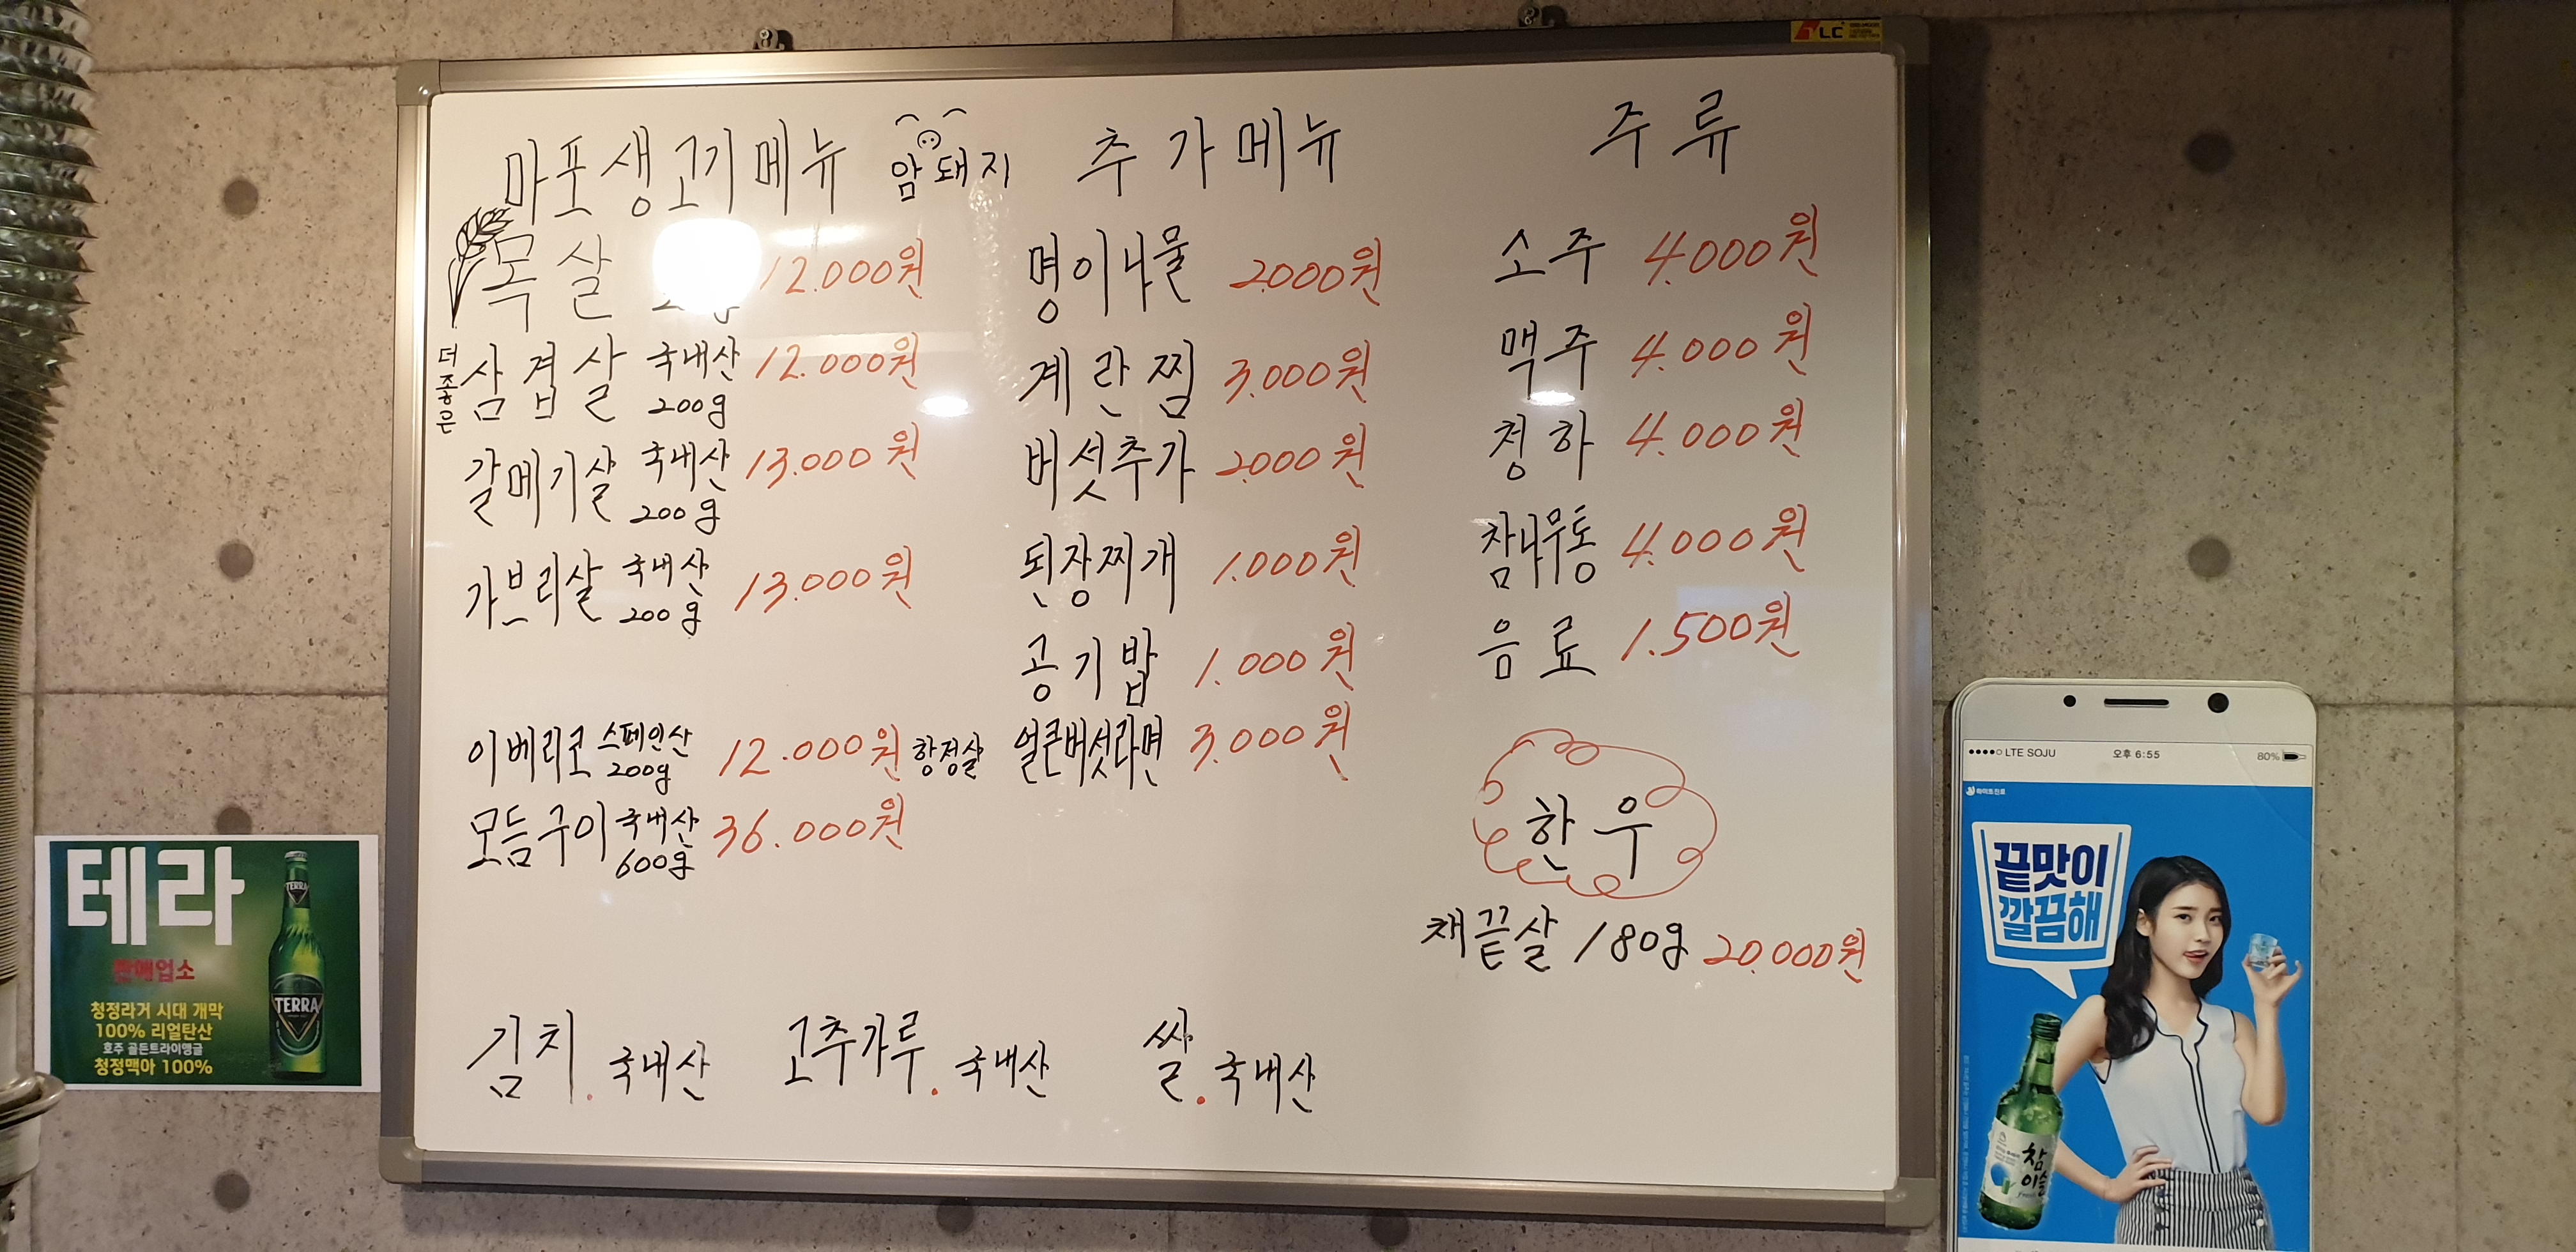 LC
마포생고기메뉴 암돼지
목살 12.000원
더좋은 삼겹살 국내산 200g 12.000원
갈메기살 국내산 200g 13.000원
가브리살 국내산 200g 13.000원
이베리코 스페인산 200g 12.000원 항정살
모듬구이 국내산 600g 36.000원
추가메뉴
명이나물 2000원
계란찜 3.000원
버섯추가 2000원
된장찌개 1.000원
공기밥 1.000원
얼큰버섯라면 3.000원
주류
소주 4.000원
맥주 4.000원
청하 4.000원
참나무통 4.000원
음료 1.500원
한우
채끝살 180g 20.000원
김치. 국내산 고추가루. 국내산 쌀. 국내산
테라
판매업소
청정라거 시대 개막
100% 리얼탄산
호주 골든트라이앵글
청정맥아 100%
TERRA
TERRA
LTE SOJU 오후 6:55 80%
하이트진로
끝맛이
깔끔해
참
이슬